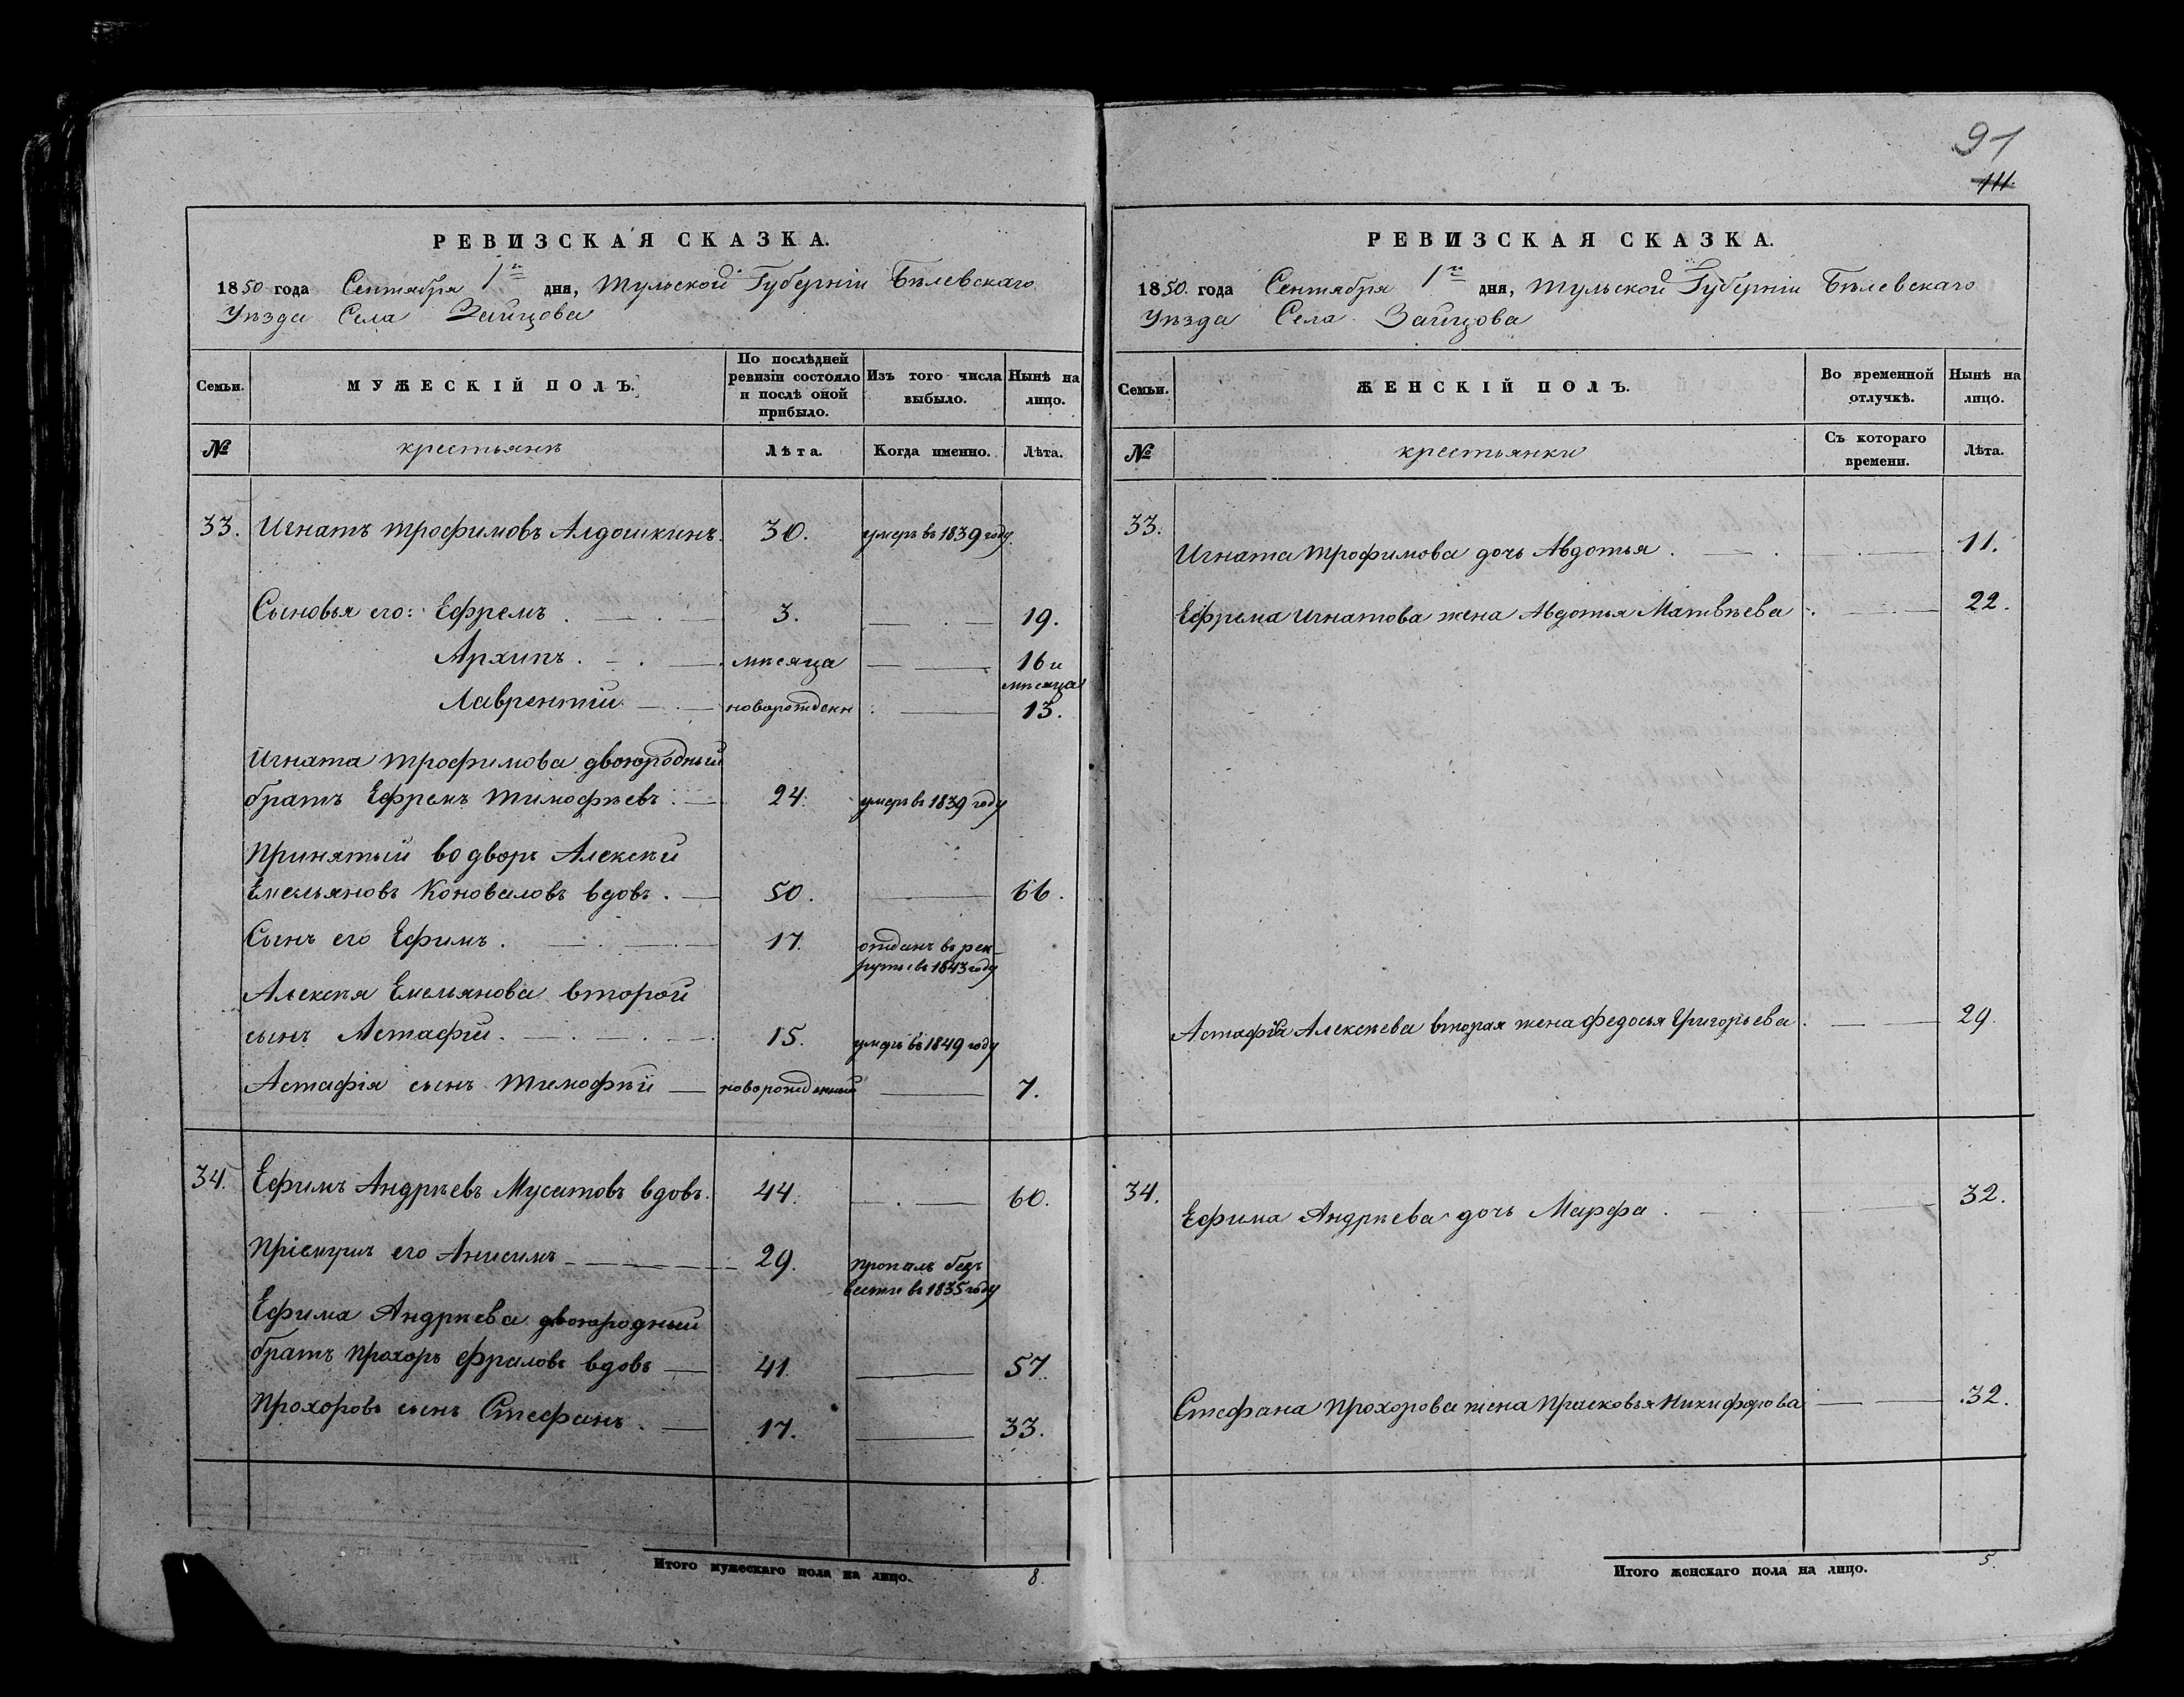 РЕВИЗСКАЯ СКАЗКА.
1850 года Сентября 1го дня, Тульской Губерніи Бѣлевскаго
Уѣзда Села Зайцова
Семьи. МУЖЕСКІЙ ПОЛЪ. По послѣдней ревизіи состояло и послѣ оной прибыло. Изъ того числа выбыло. Нынѣ на лицо.
№ крестьянъ Лѣта. Когда именно. Лѣта.
33. Игнатъ Трофимовъ Алдошкинъ 30. умеръ въ 1839 году.
Сыновья его: Ефремъ 3. 19.
Архипъ мѣсяца 16 и мѣсяца
Лаврентій новорожденн 13.
Игната Трофимова двоюродный
братъ Ефремъ Тимофѣевъ 24. умеръ въ 1839 году
Принятый во дворъ Алексѣй
Емельяновъ Коноваловъ вдовъ 50. 66.
Сынъ его Ефимъ 17. отданъ въ рек-
руты въ 1843 году
Алексѣя Емельянова второй
сынъ Астафій 15. умеръ въ 1849 году
Астафія сынъ Тимофѣй новорожденный 7.
34. Ефимъ Андрѣевъ Мусатовъ вдовъ. 44. 60.
Пріемушъ его Анисимъ 29. пропалъ безъ
вести въ 1835 году
Ефима Андрѣева двоюродный
братъ Прохоръ Фраловъ вдовъ 41. 57.
Прохоровъ сынъ Стефанъ 17. 33.
Итого мужескаго пола на лицо. 8.
91
111.
РЕВИЗСКАЯ СКАЗКА.
1850. года Сентября 1го дня, Тульской Губерніи Бѣлевскаго
Уѣзда Села Зайцова
Семьи. ЖЕНСКІЙ ПОЛЪ. Во временной отлучкѣ. Нынѣ на лицо.
№ крестьянки Съ котораго времени. Лѣта.
33. Игната Трофимова дочь Авдотья 11.
Ефрема Игнатова жена Авдотья Матвѣева 22.
Астафія Алексѣева вторая жена Федосья Григорьева 29.
34. Ефима Андрѣева дочь Марфа 32.
Стефана Прохорова жена Прасковья Никифорова 32.
Итого женскаго пола на лицо. 5